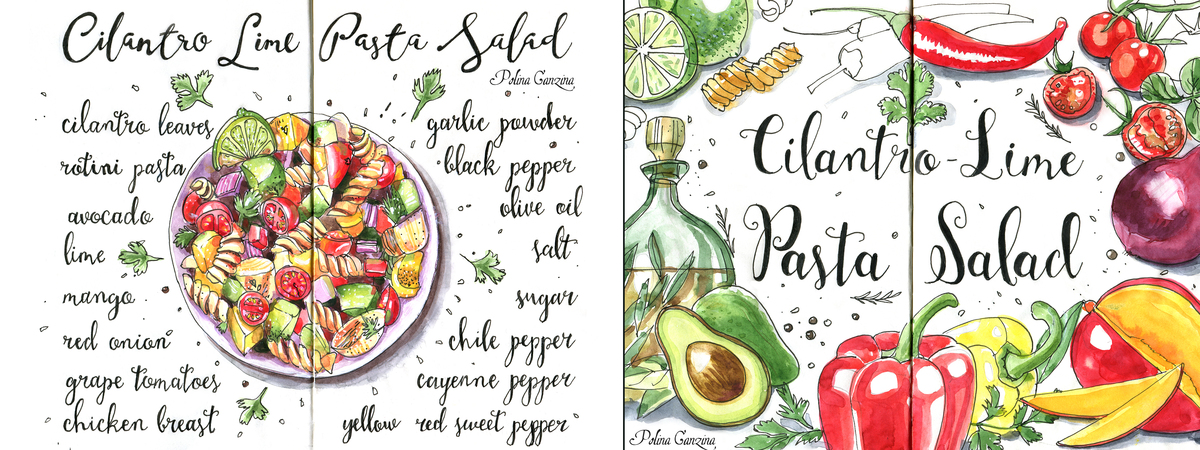 Cilantro Lime Pasta Salad
Polina Ganzina
cilantro leaves
rotini pasta
avocado
lime
mango
red onion
grape tomatoes
chicken breast
garlic powder
black pepper
olive oil
salt
sugar
chile pepper
cayenne pepper
yellow red sweet pepper
Cilantro-Lime
Pasta Salad
Polina Ganzina